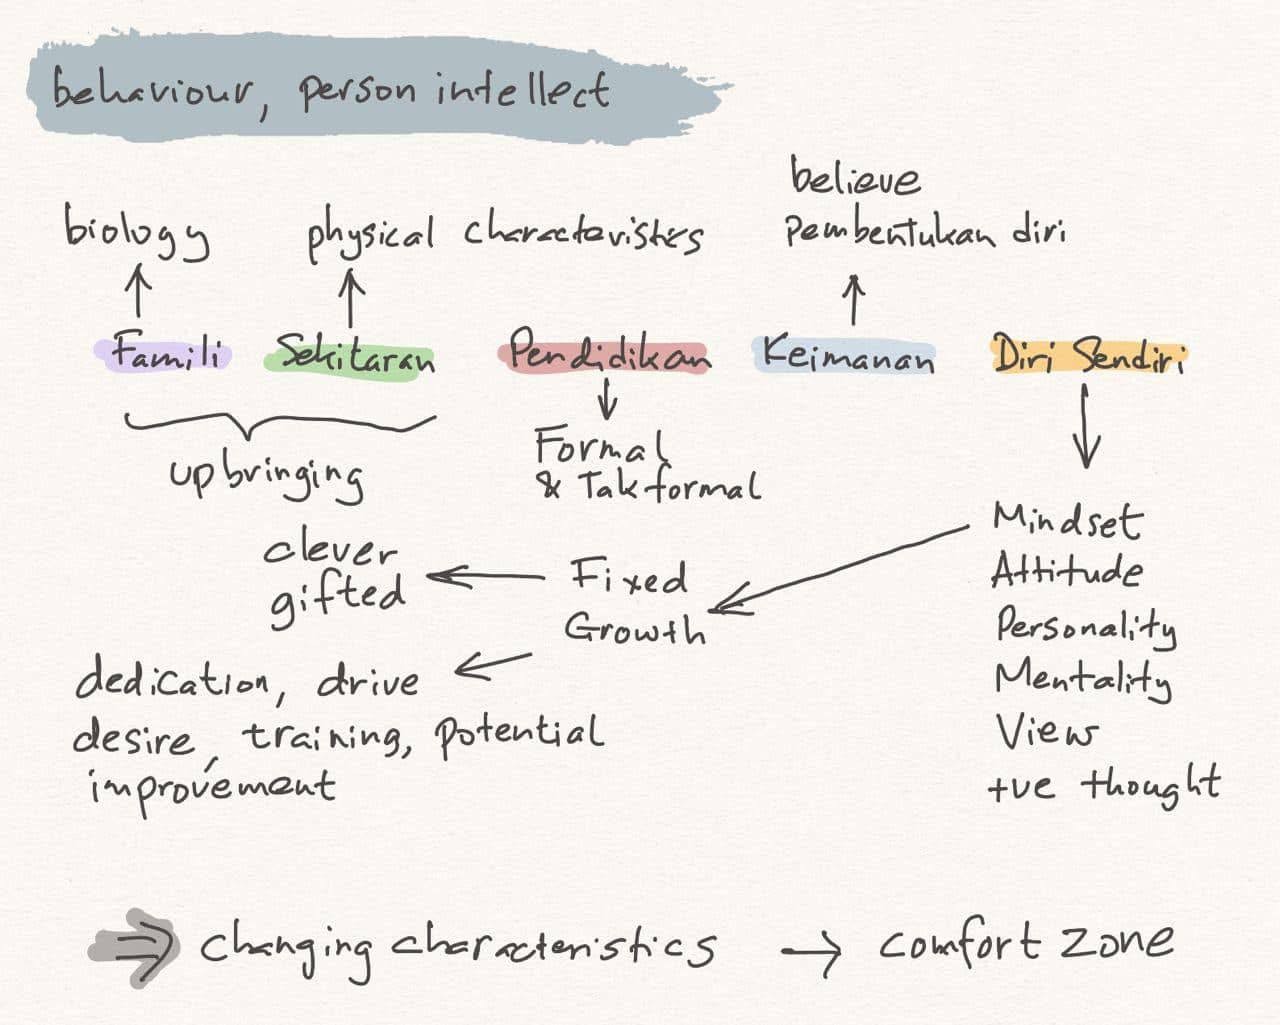 behaviour, person intellect
believe
biology physical characteristics pembentukan diri
Famili Sekitaran Pendidikan Keimanan Diri Sendiri
upbringing
Formal
& Tak formal
Mindset
Attitude
Personality
Mentality
View
+ve thought
Fixed
Growth
clever
gifted
dedication, drive
desire, training, potential
improvement
changing characteristics → comfort zone